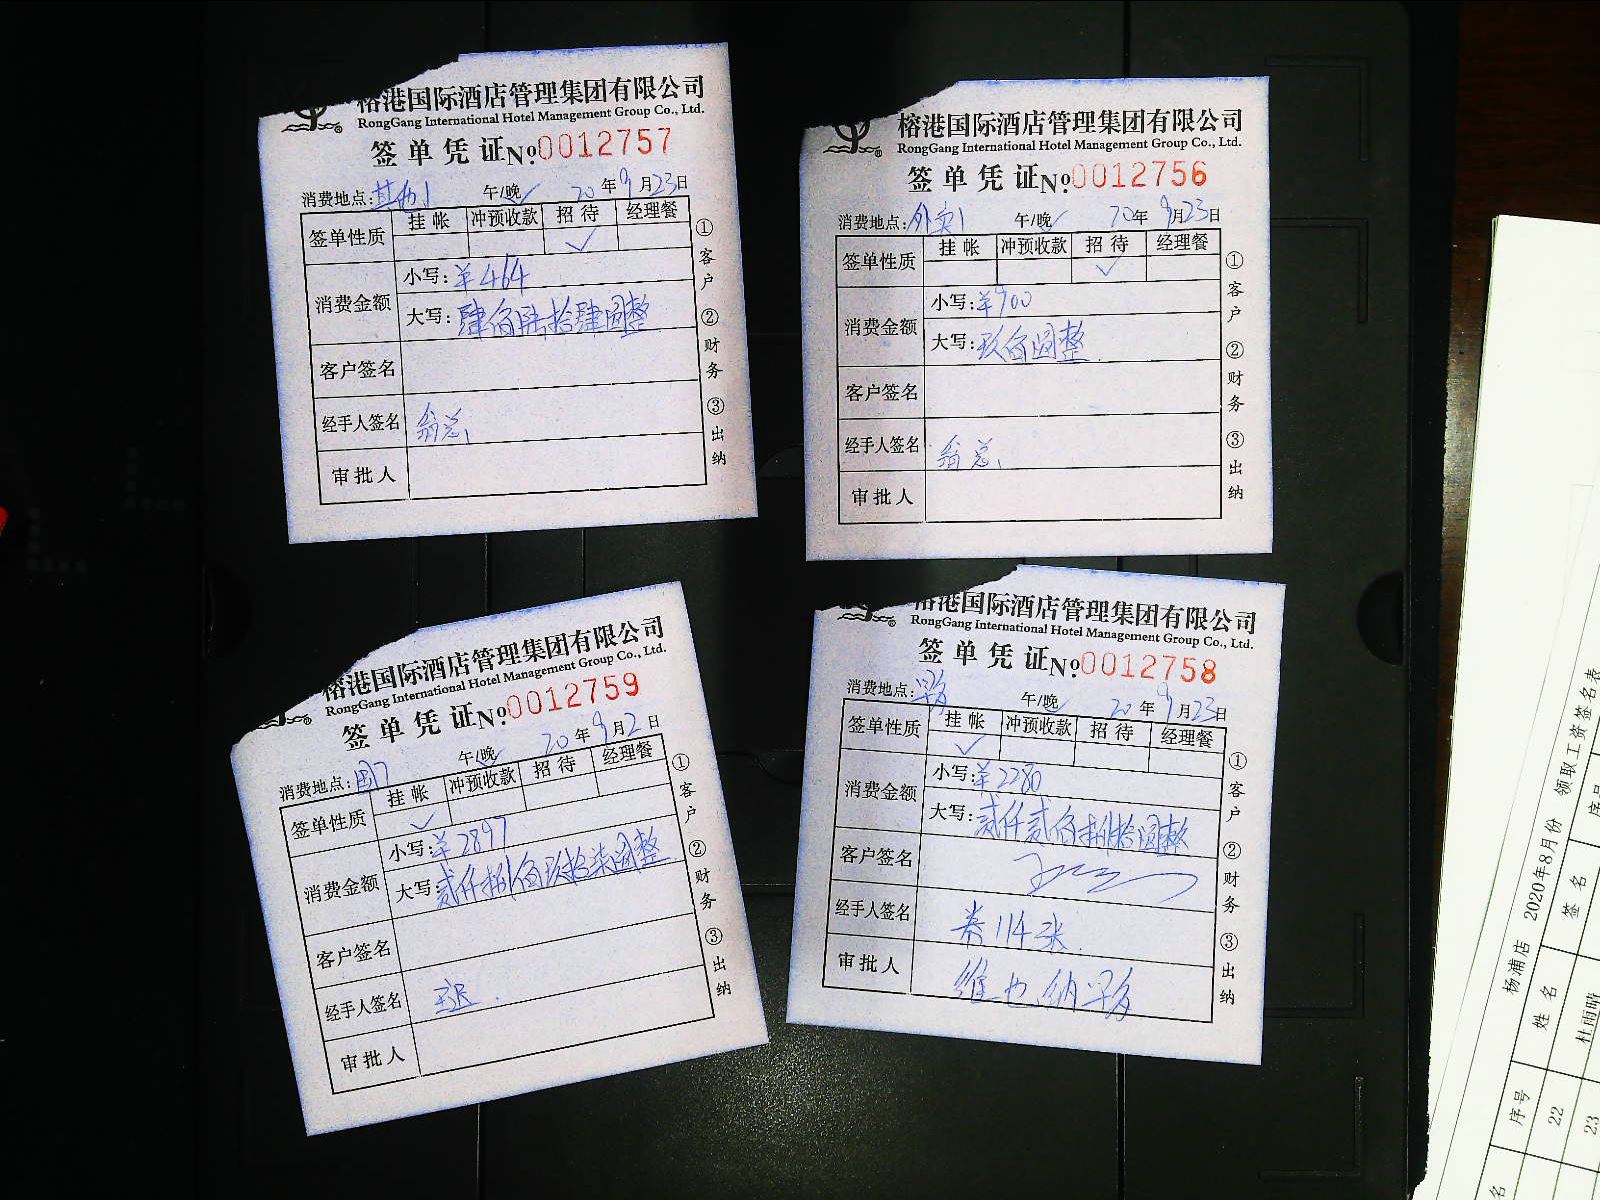 榕港国际酒店管理集团有限公司
RongGang International Hotel Management Group Co., Ltd.
签单凭证 No 0012757
消费地点: 其他1 午/晚 20年9月23日
签单性质 挂帐 冲预收款 招待 经理餐
✓
消费金额 小写: ¥464
大写: 肆佰陆拾肆圆整
客户签名
经手人签名 翁总
审批人
①客户 ②财务 ③出纳
榕港国际酒店管理集团有限公司
RongGang International Hotel Management Group Co., Ltd.
签单凭证 No 0012756
消费地点: 外卖1 午/晚 20年9月23日
签单性质 挂帐 冲预收款 招待 经理餐
✓
消费金额 小写: ¥900
大写: 玖佰圆整
客户签名
经手人签名 翁总
审批人
①客户 ②财务 ③出纳
榕港国际酒店管理集团有限公司
RongGang International Hotel Management Group Co., Ltd.
签单凭证 No 0012759
消费地点: 午/晚 20年9月2日
签单性质 挂帐 冲预收款 招待 经理餐
✓
消费金额 小写: ¥2897
大写: 贰仟捌佰玖拾柒圆整
客户签名
经手人签名
审批人
①客户 ②财务 ③出纳
榕港国际酒店管理集团有限公司
RongGang International Hotel Management Group Co., Ltd.
签单凭证 No 0012758
消费地点: 午/晚 20年9月23日
签单性质 挂帐 冲预收款 招待 经理餐
✓
消费金额 小写: ¥2280
大写: 贰仟贰佰捌拾圆整
客户签名
经手人签名 券114张
审批人 维也纳早
①客户 ②财务 ③出纳
杨浦店 2020年8月份 领取工资签名表
序号 姓名 签名 序号
22 杜雨晴
23